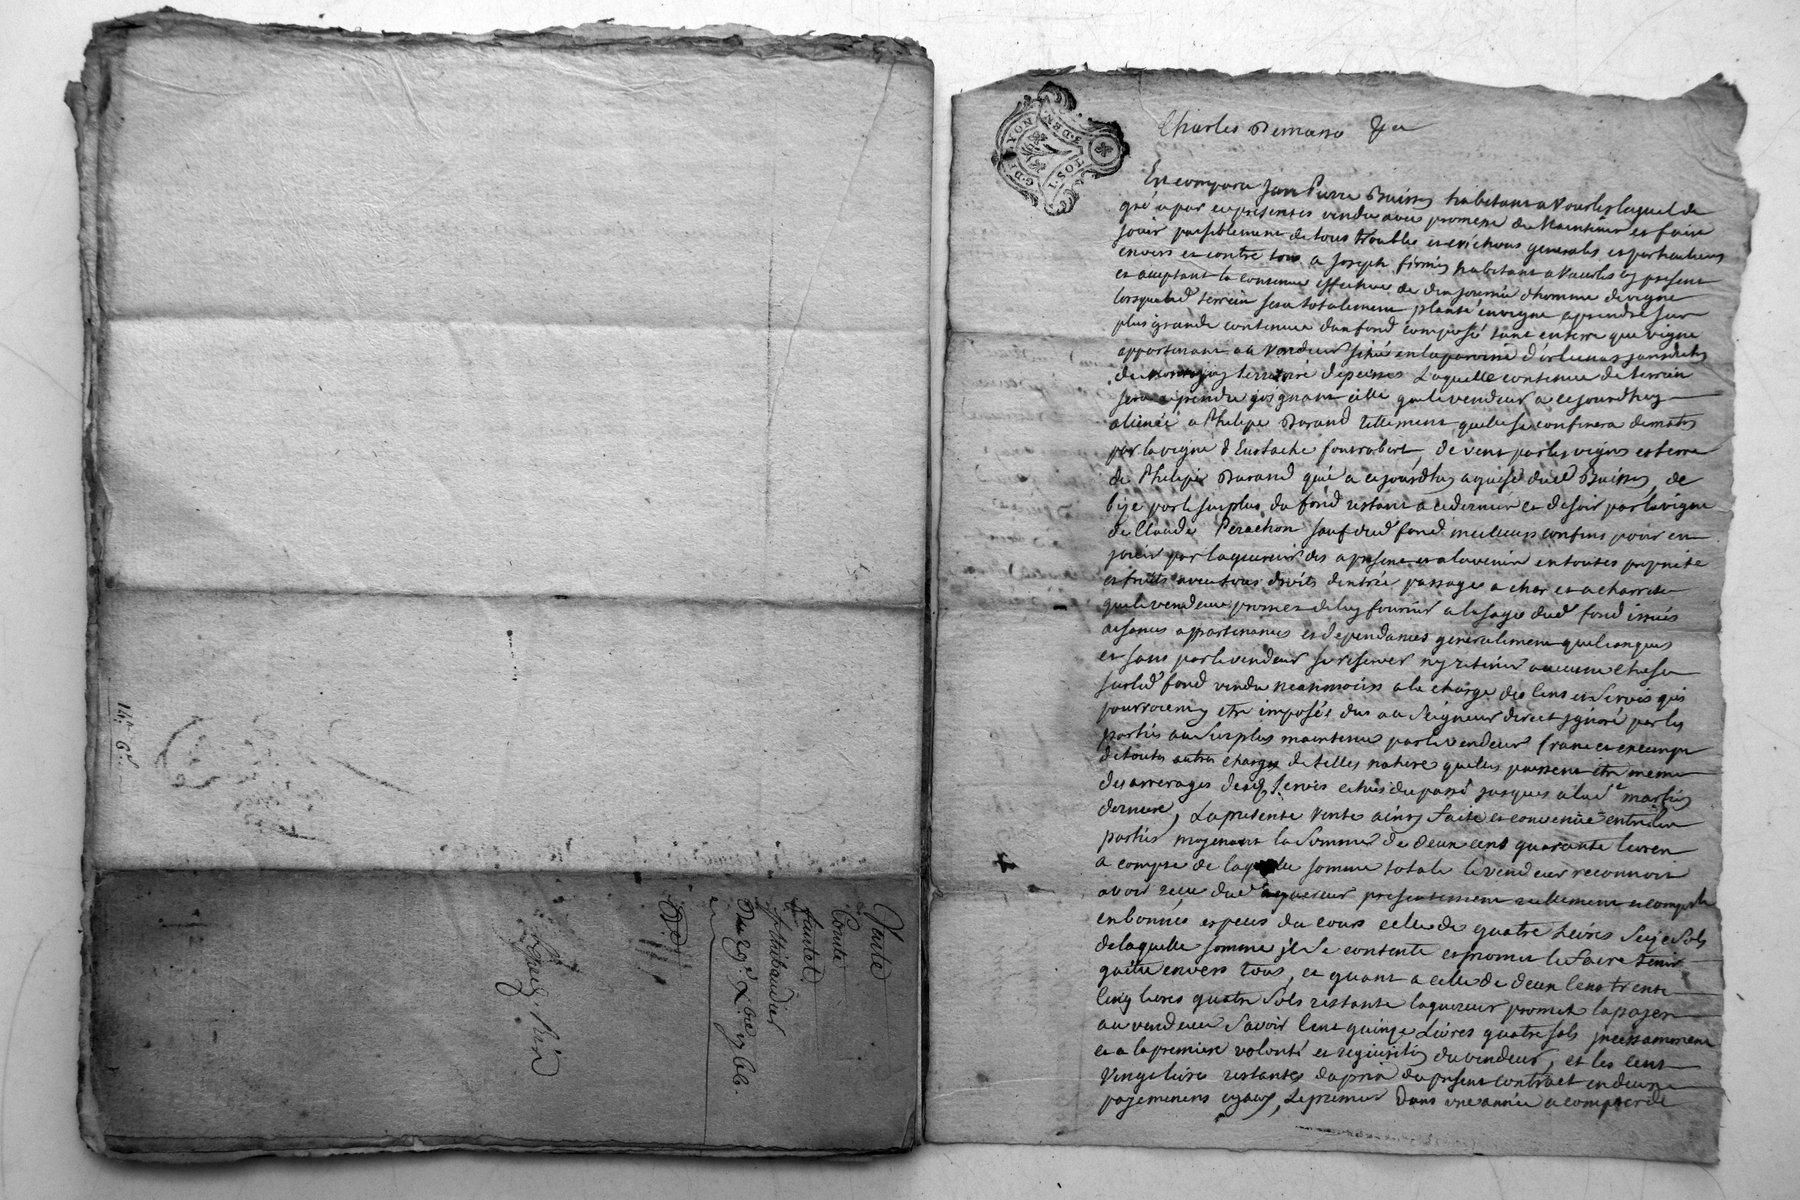 Vante
Comte
fautet
Thibaudier
Du 29e. 
14# 6s
G. DE LYON
2 S. DEN
Charles Demana &ca
En compara Jean Pierre Buisson habitant a Vourles lequel de
gré a par ces présentes vendu avec promesse de Maintenir et faire
jouir paisiblement de tous troubles et evictions generales et particulieres
envers et contre tous a Joseph firmin habitant a Vourles cy present
et aceptant la contenue effective de dix journée d'homme de vigne
lorsque led. terrein sera totalement planté en vigne a prendre sur
plus grande contenue d'un fond composé tant en terre que vigne
appartenant au Vendeur situé en la paroisse d'orlienas jurisdiction
de Montagny territoire de laquelle contenue de terrein
sera a prendre joignant celle que le vendeur a cejourdhuy
alienée a Philipe Durand tellement quelle se confinera de matin
par la vigne d'Eustache fontrobert, de vent par les vignes et terre
de Philipe Durand qué a cejourdhuy aquise dud. Buisson, de
bize par le surplus du fond restant a ce dernier et de soir par la vigne
de Claude Perachon sauf dud. fond meilleurs confins pour en
jouir par laquereur des a present et a l'avenir en toutes propriété
et fruits avec tous droits d'entrée passages a char et a charrete
que le vendeur promet de luy fournir a l'usage dud. fond issües
aisances appartenances et dependances generalement quelconques
et sans par le vendeur se réserver ny retenir aucune chose
surled. fond vendu neanmoins a la charge des Cens et Servis qui
pourroient etre imposés dus au Seigneur direct ignoré par les
parties au Surplus maintenu par le vendeur franc et exempt
de toutes autres charges de telles nature quelles puissent être meme
des arrerages desd. Servis echus du passé jusques a la st. martin
derniere, La presente Vente ainsy faite et convenüe entre les
parties moyenant la Somme de deux cent quarante livres
a compte de laquelle somme totale le vendeur reconnoit
avoir reçu dud. aquereur presentement reellement et comptant
en bonnes especes du cours celle de quatre Livres Seize Sols
de laquelle somme il se contente et promet le faire tenir
quitte envers tous, et quant a celle de deux Cens trente
Cinq livres quatre Sols restante laquereur promet la payer
au vendeur Savoir Cent quinze Livres quatre sols incessamment
et a la premiere volonté et requisition du vendeur, et les Cent
Vingt livres restantes du prix du present contract en deux
payements egaux, Le premier Dans une année a compter de